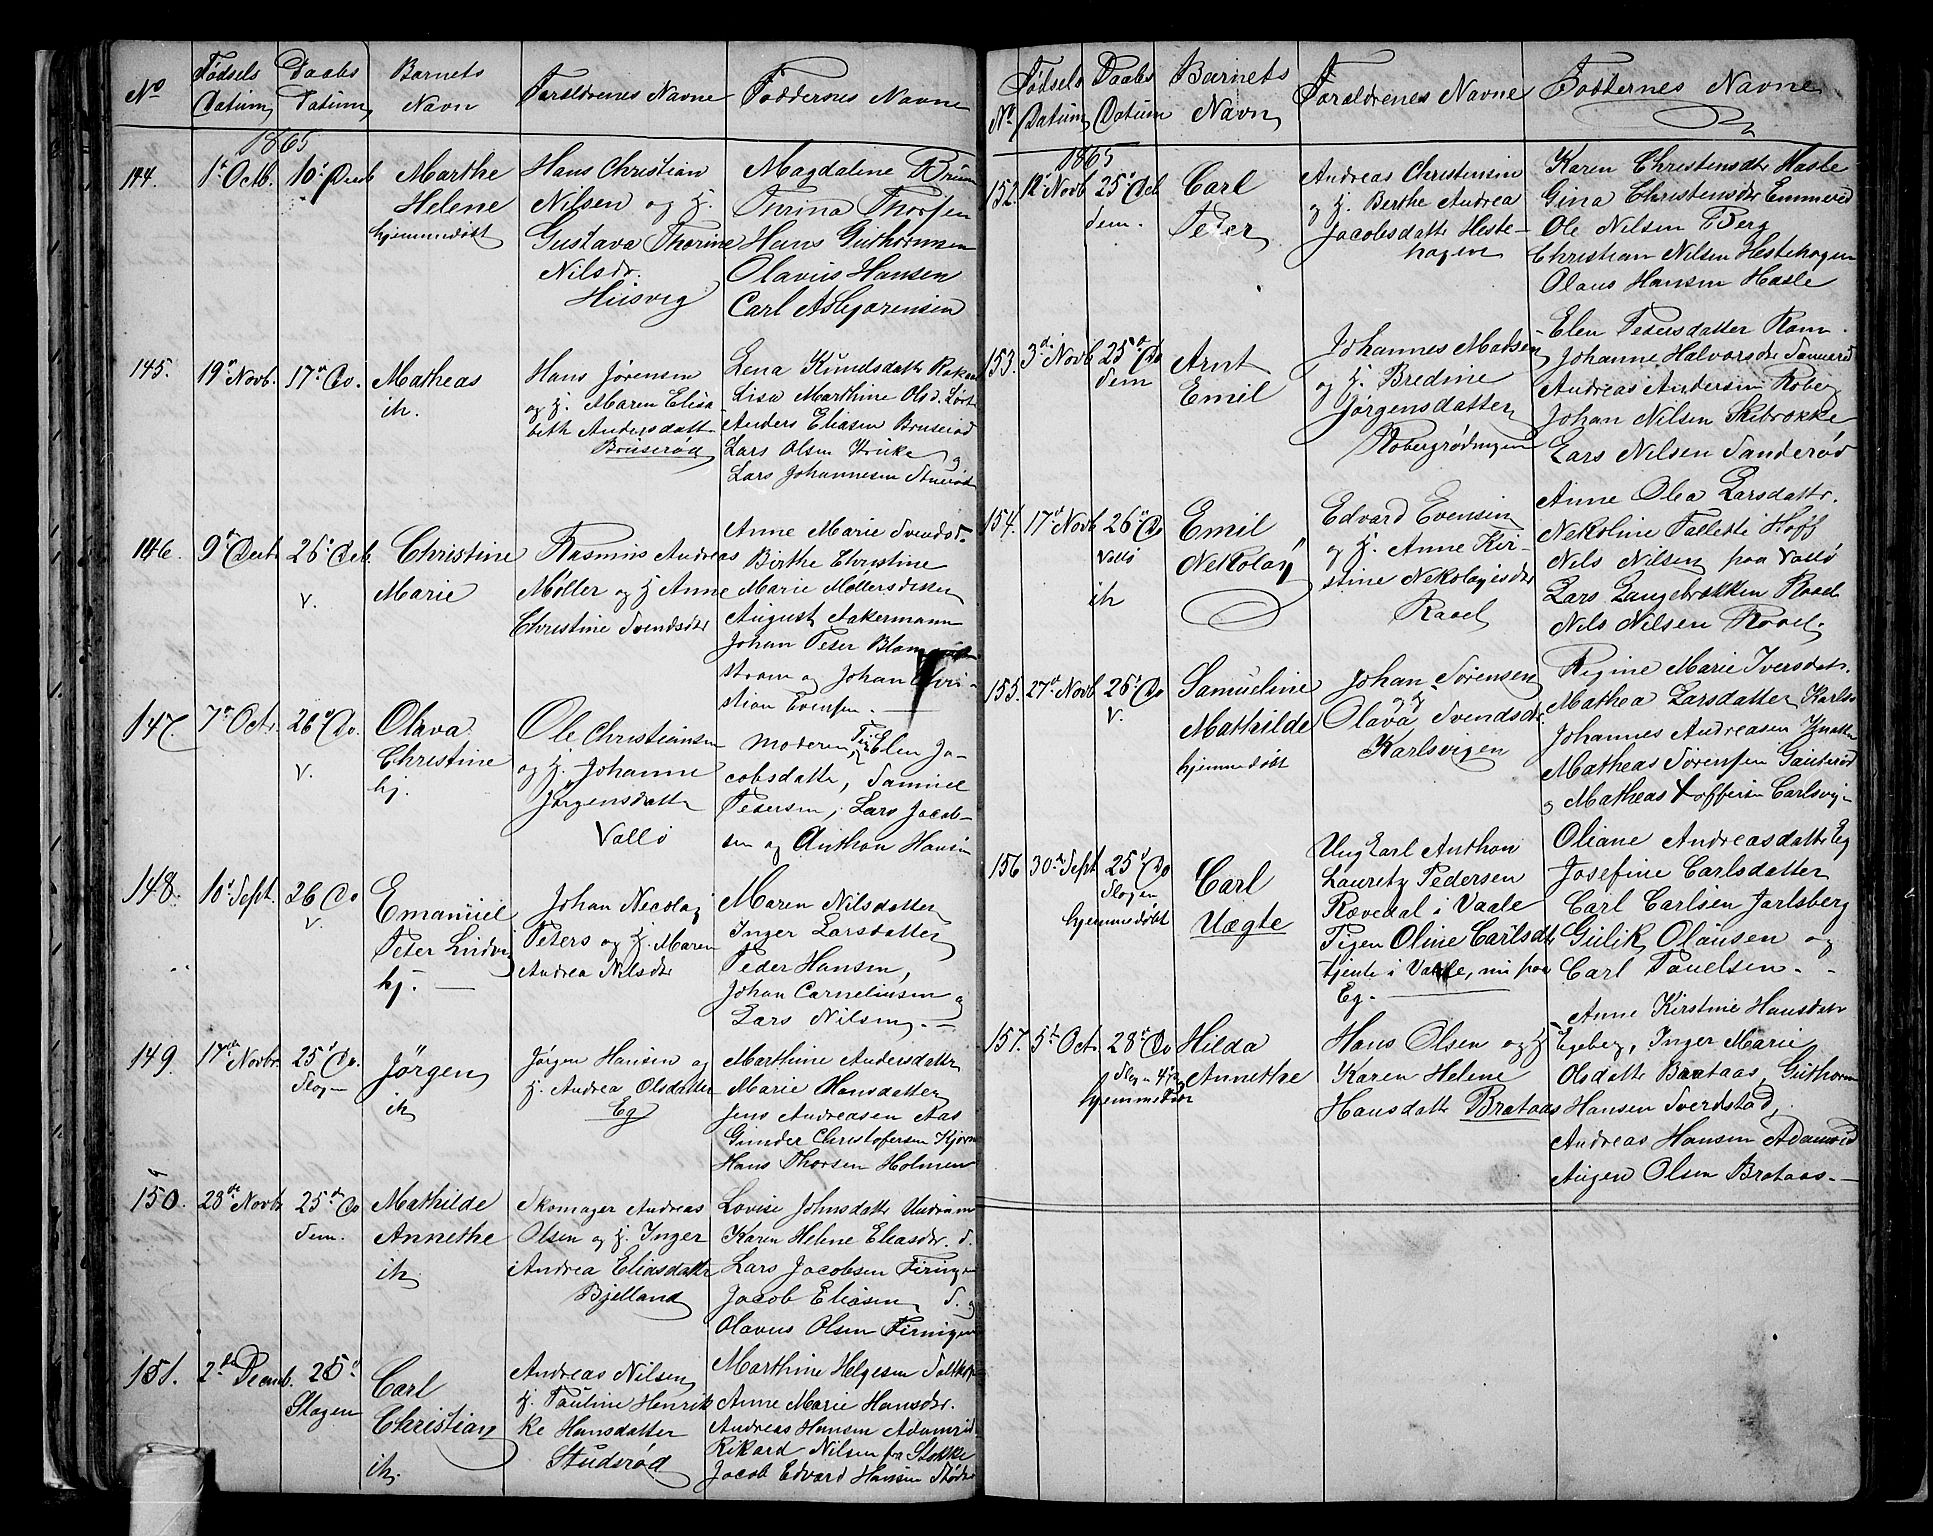 No
Fødsels
Datum
Daabs
Datum
Barnets
Navn
Forældrenes Navne
Faddernes Navne
1865
144.
1ste Octb.
10de Decb
Marthe
Helene
hjemmedøbt
Hans Christian
Nilsen og H.
Gustava Thorine
Nilsdr.
Husvig
Magdaline Bruun
Thrina Thorsen
Hans Guthormsen
Olavus Hansen
Carl Asbjørensen
145.
19de Novb.
17de Do.
Matheas
ih.
Hans Jørensen
og H. Maren Elisa
beth Andersdatt
Bruserød
Lena Knudsdatte
Lisa Marthine Olsd.
Anders Eliasen Bruserød
Lars Olsen
og
Lars Johannesen
146.
9de Decb
26de Decb.
V.
Christine
Marie
Rasmus Andreas
Møller og H Anne
Christine Svendsdr
Anne Marie Svendsd.
Birthe Christine
Marie Møllersdatter
August Aakermann
Johan Peter
strøm og Johan Chri-
stian Evensen.
147.
7de Oct.
26de Do.
V.
Olava
Christine
hj.
Ole Christiansen
og H. Johanne
Jørgensdatte
Vallø
Moderen Elen Ja-
cobsdatte, Samuel
Petersen, Lars Jacob-
sen og Anthon Hansen
148.
10de Sept.
26 Do
V.
Emanuel
Peter
hj.
Johan Necolay
Peters og H. Maren
Andrea Nilsdr
Maren Nilsdatter
Inger Larsdatter
Peder Hansen,
Johan Corneliusen og
Lars Nilsen.
149.
17de Novbr
25de Do.
Slagn
Jørgen
ih
Jørgen Hansen og
H. Andrea Olsdatter
Eg
Marthine Andersdatte
Marie Hansdatter
Jens Andreasen Aas
Gunder Christofersen
Hans Thorsen Holmen
150.
28de Novb
25de Do
Sem.
Mathilde
Annethe
ih
Skomager Andreas
Olsen og H. Inger
Andrea Eliasdatte
Bjelland
Lovise Johnsdatte
Karen Helene Eliasdr.
Lars Jacobsen
Jacob Eliasen
Olavus Olsen
151.
2den Decmb.
25de
Slagen
Carl
Christian
ih.
Andreas Nilsen
H. Pauline Henrik
ke Hansdatter
Studerød
Marthine Helgesen
Anne Marie Hansdr.
Andreas Hansen Adamrød
Rikard Nilsen fra Stokke
Jacob Edvard Hansen
No
Fødsels
Datum
Daabs
Datum
Barnets
Navn
Forældrenes Navne
Faddernes Navne
1865
152.
12te Novb
25de Decb
Sem.
Carl
Peter
Andreas Christensen
og H. Berthe Andrea
Jacobsdatte Heste-
hagen
Karen Christensdtr Hasle
Gina Christensdtr
Ole Nilsen Berg
Christian Nilsen Hestehagen
Olaus Hansen Hasle
153.
3de Novb
25de Do
Sem
Arnt
Emil
Johannes Matsen
og H. Bredine
Jørgensdatter
Robergrødningen
Elen Petersdatter Ram.
Johanne Halvorsdtr
Andreas Andersen Roberg
Johan Nilsen Skibrokke
Lars Nilsen Sanderød
154.
17de Novb
26de Do
Vallø
ih
Emil
Nekolay
Edvard Evensen
og H. Anne Kir-
stine Nekolayisdtr
Rael
Anne Olea Larsdattr.
Nekoline Hoff
Nils Nilsen paa Vallø
Lars Langebrækken Rael
Nils Nilsen Rael
155.
27de Novb
26de Do
V.
Samueline
Mathilde
hjemmedøbt
Johan Sørensen
og
Olava Svendsdr
Karlsvigen
Regine Marie Iversdatr.
Mathea Larsdatter Karlsv
Johannes Andreasen
Matheas Sørensen
og Matheas Carlsvig
156
30de Sept
25de Do
Slagen
hjemmedøbt
Carl
Uægte
Ung Carl Anthon
Lauretz Pedersen
Rævedal i Vaale
Pigen Oline Carlsdtr
tjente i Vaale, nu paa
Eg.
Oliane Andreasdatte Eg
Josefine Carlsdatter
Carl Carlsen Jarlsberg
Gulik Olausen og
Carl Pauelsen.
157.
5te Oct
28de Do
Slagn
hjemmedøbt
Hilda
Annethe
Hans Olsen og H
Karen Helene
Hansdatte Brataas
Anne Kirstine Hansdatr
Egeberg, Inger Marie
Olsdatte Brataas, Guthorm
Hansen Sverdstad,
Andreas Hansen Adamrød
Augen Olsen Brataas.